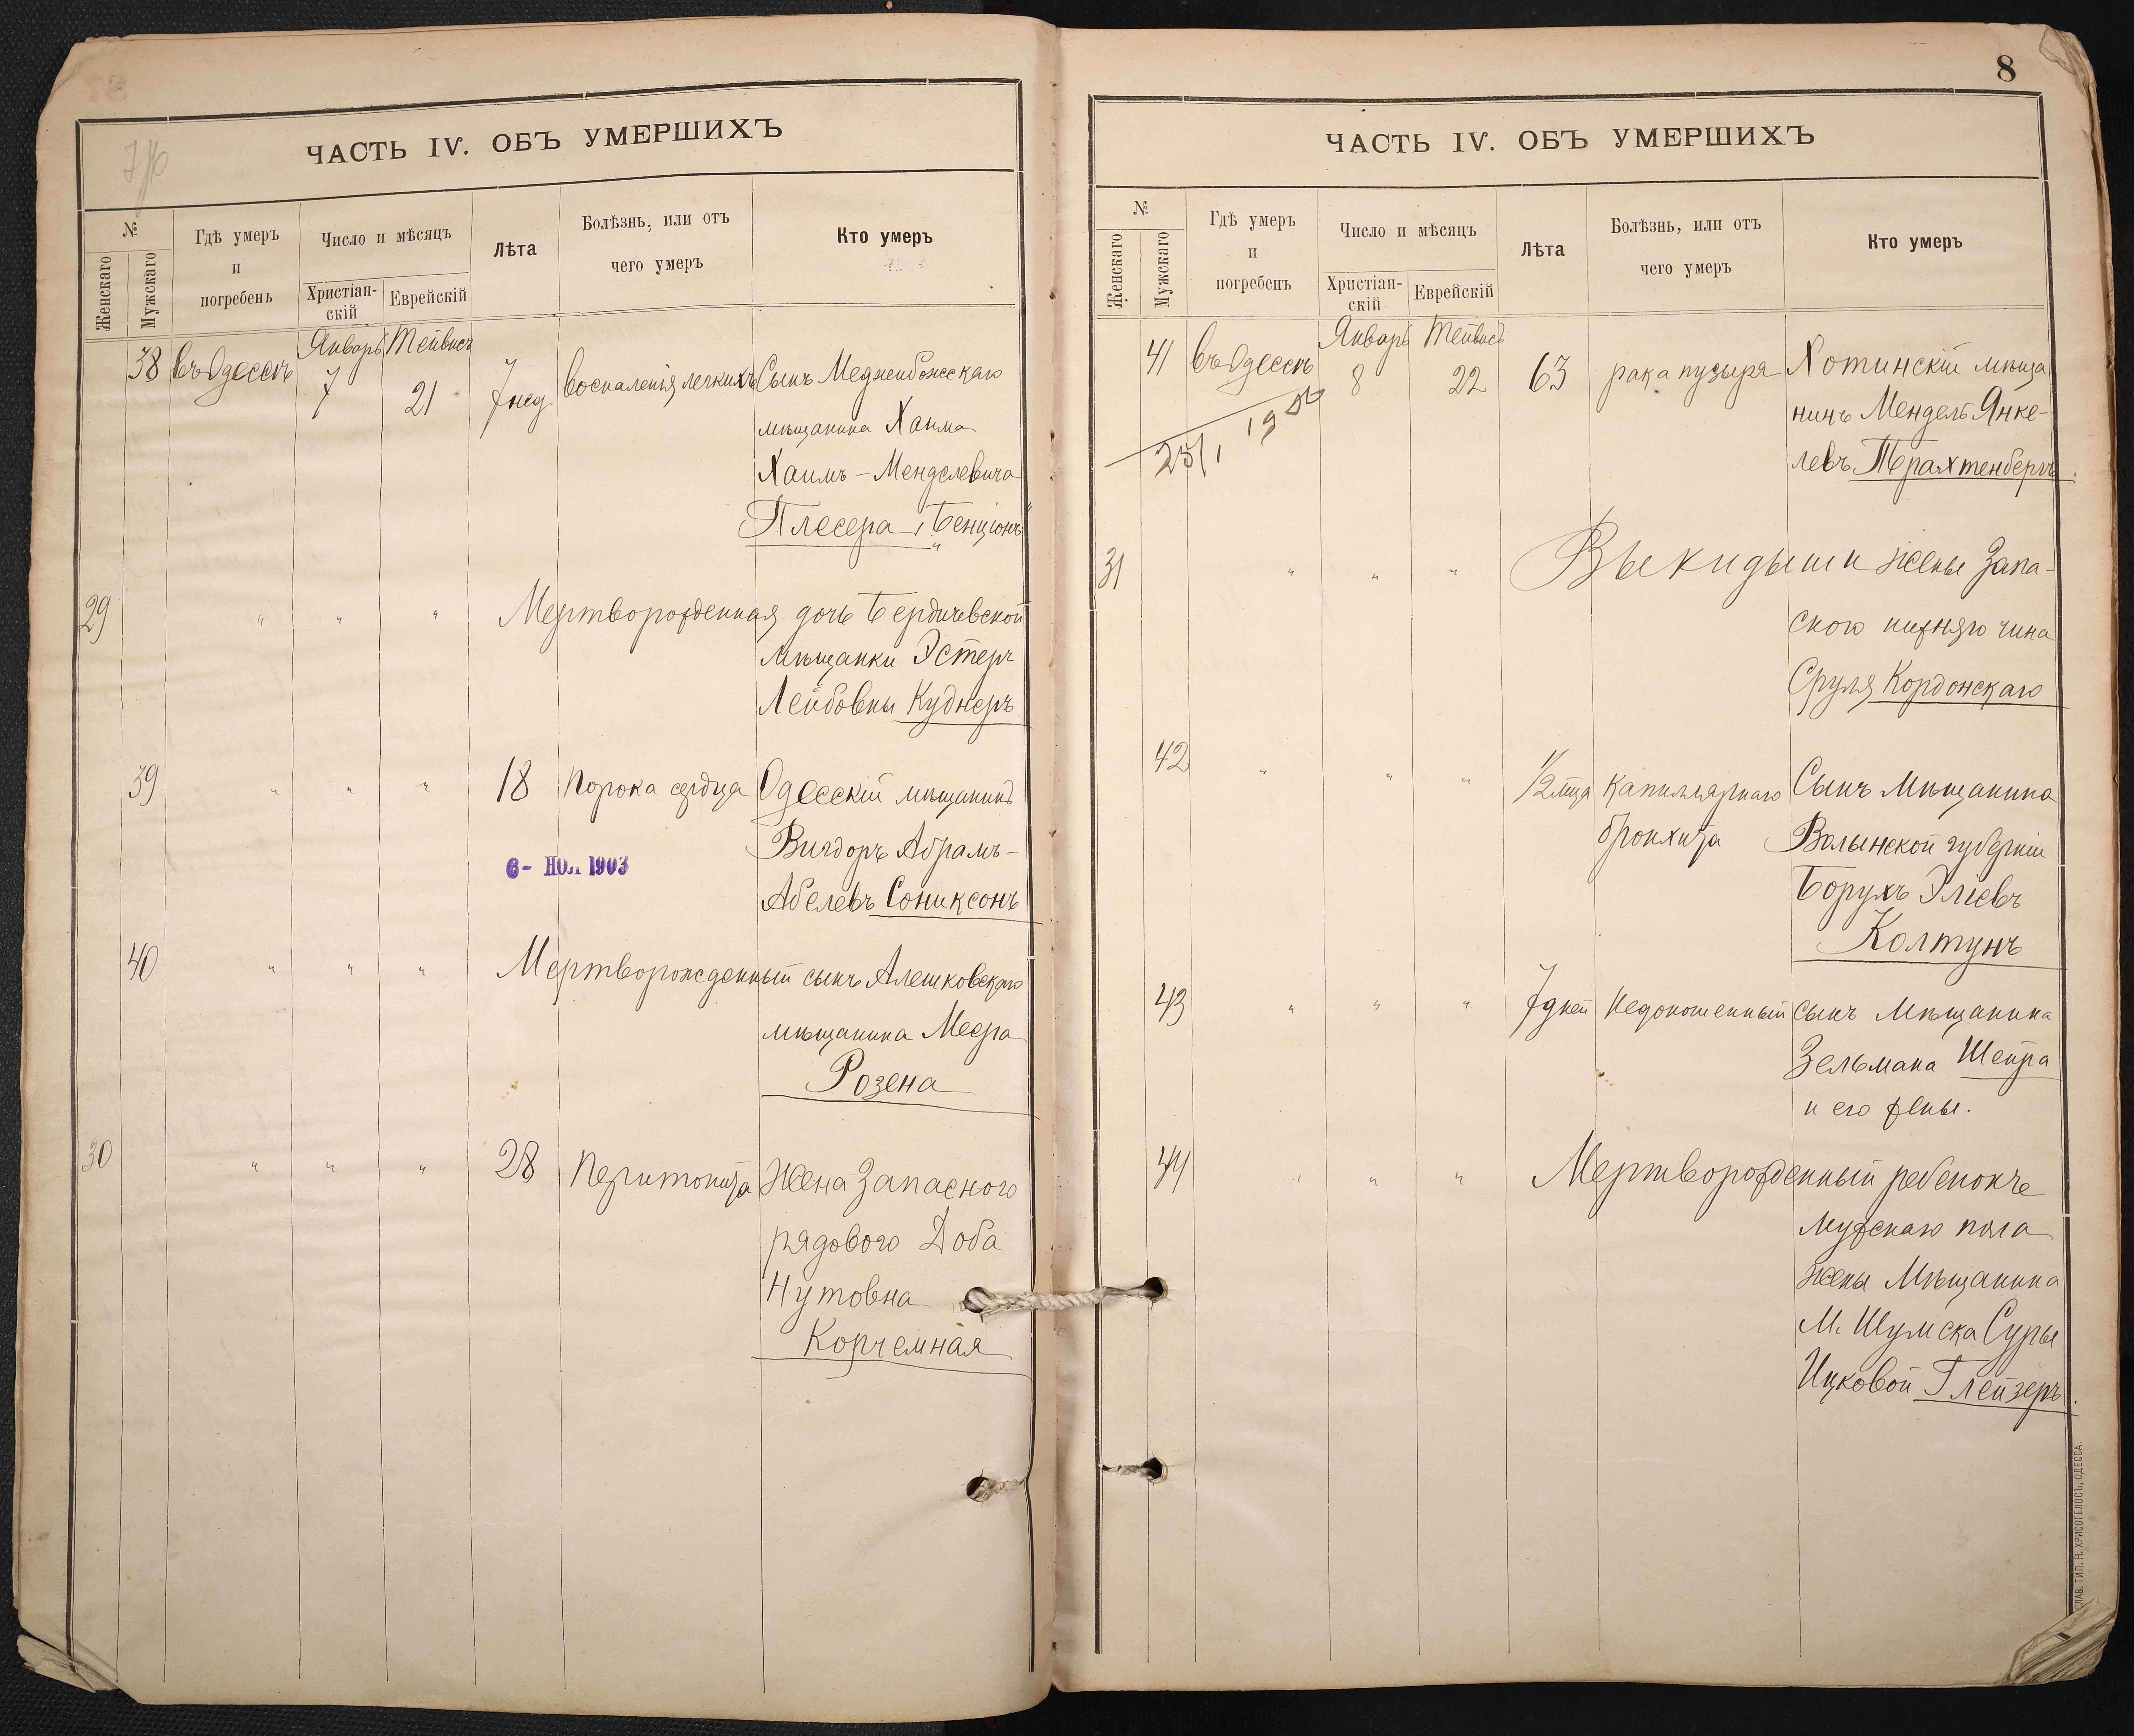 ЧАСТЬ IV. ОБЪ УМЕРШИХЪ
№
Женскаго
Мужскаго
Гдѣ умеръ
и
погребенъ
Число и мѣсяцъ
Христіан-
скій
Еврейскій
Лѣта
Болѣзнь, или отъ
чего умеръ
Кто умеръ
Январь Тейвисъ
38 въ Одессѣ 7 21 7 нед воспаленія легкихъ Сынъ Меджибожскаго
мѣщанина Хаима
Хаимъ-Менделевича
Плесера, „Бенціонъ"
29 " " " Мертворожденная дочь Бердичевской
мѣщанки Эстеръ
Лейбовны Куднеръ
39 " " " 18 Порока сердца Одесскій мѣщанинъ
Вигдоръ Абрамъ-
6- НОЯ 1903
Абелевъ Сониксонъ
40 " " " Мертворожденный сынъ Алешковскаго
мѣщанина Меера
Розена
30 " " " 28 Перитонита Жена Запасного
рядового Доба
Нутовна
Корчемная
8
ЧАСТЬ IV. ОБЪ УМЕРШИХЪ
№
Женскаго
Мужскаго
Гдѣ умеръ
и
погребенъ
Число и мѣсяцъ
Христіан-
скій
Еврейскій
Лѣта
Болѣзнь, или отъ
чего умеръ
Кто умеръ
Январь Тейвисъ
41 въ Одессѣ 8 22 63 рака пузыря Хотинскій мѣща
нинъ Мендель Янке-
левъ Трахтенбергъ.
31 " " " Выкидыши жены Запа-
сного нижняго чина
Сруля Кордонскаго
42 " " " 1/2 мца Капиллярнаго Сынъ Мѣщанина
бронхита Волынской губерніи
Борухъ Эліевъ
Колтунъ
43 " " " 7 дней Недоношенный сынъ Мѣщанина
Зельмана Шейра
и его жены.
44 " " " Мертворожденный ребенокъ
мужскаго пола
жены Мѣщанина
М. Шумска Суры
Ицковой Глейзеръ.
СЛАВ. ТИП. Н. ХРИСОГЕЛОСЪ, ОДЕССА.